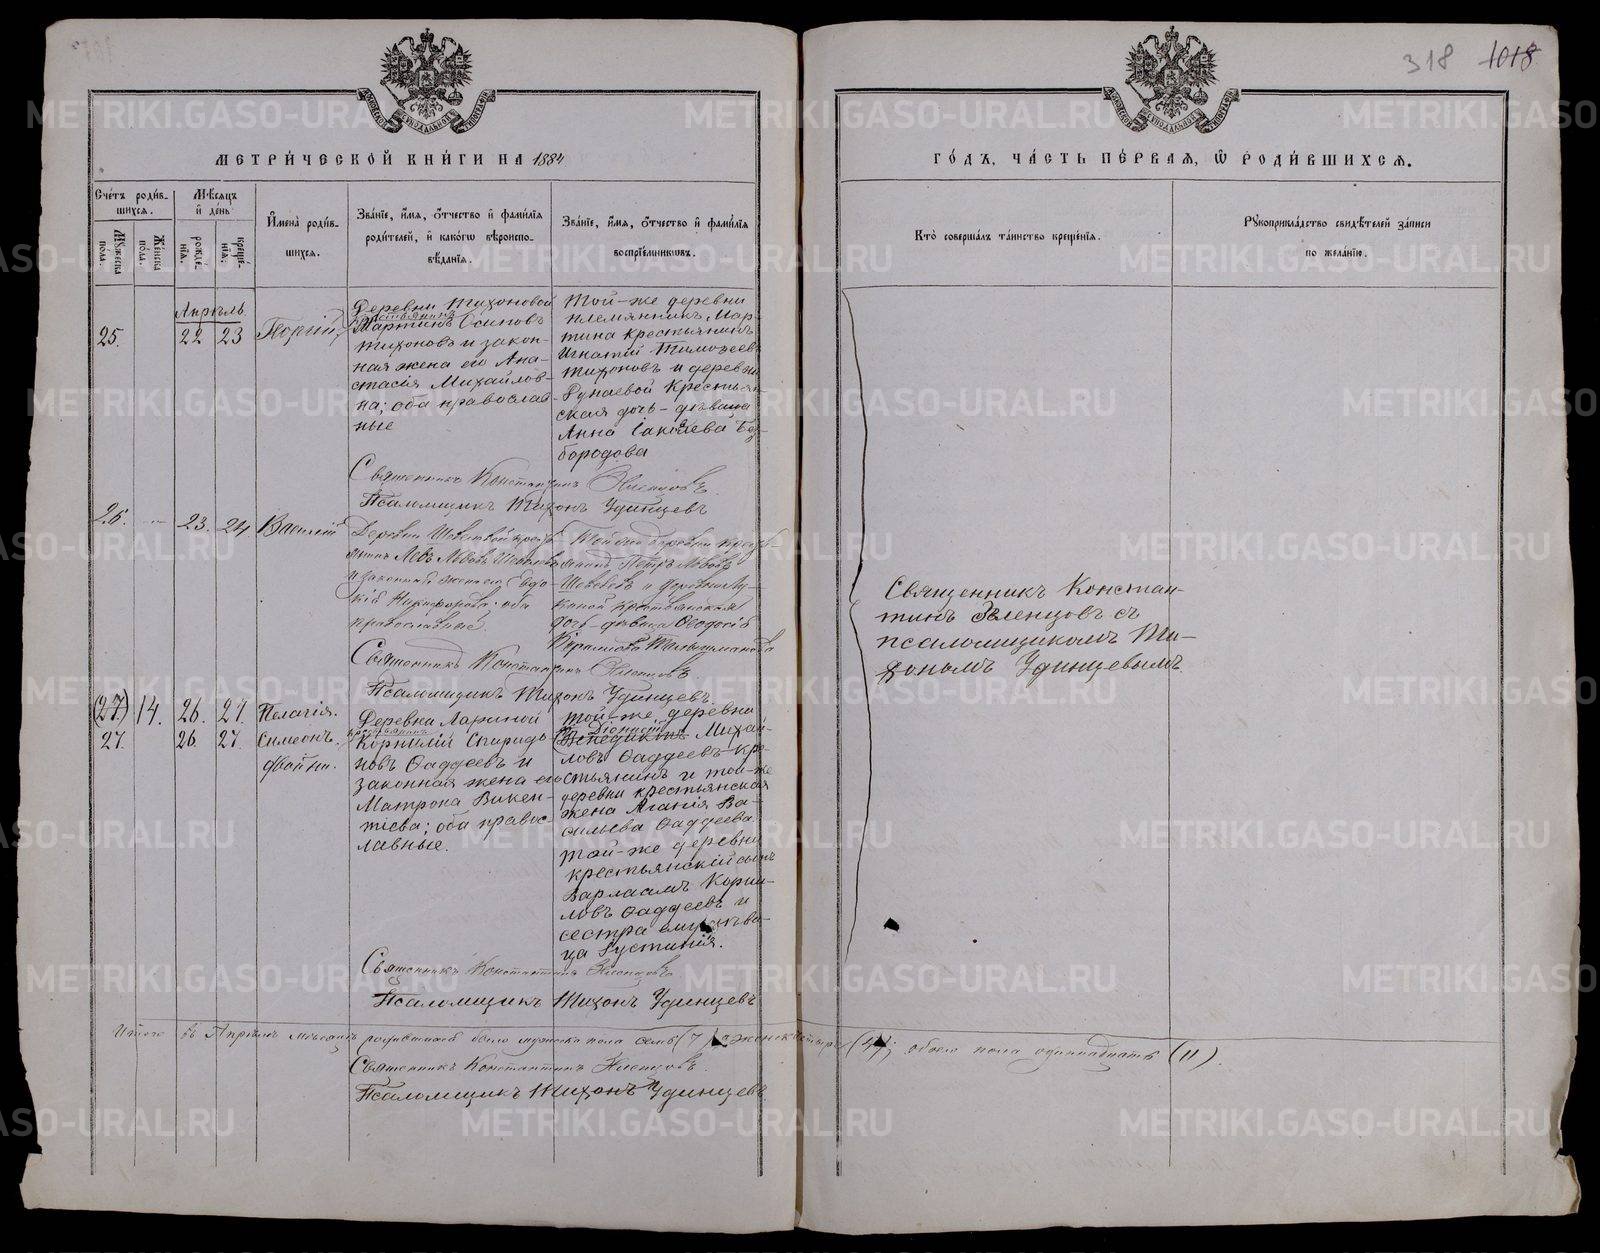 318 1018
МЕТРИ́ЧЕСКОЙ КНИ́ГИ НА 1884
ГО́ДЪ, ЧА́СТЬ ПЕ́РВАЯ, Ѡ РОДИ́ВШИХСЯ.
Сче́тъ роди́в-
шихся.
Му́жеска по́ла.
Же́нска по́ла.
Мѣ́сяцъ
и́ де́нь
рожде́нія.
креще́нія.
И҆мена̀ роди́в-
шихся.
Зва́ніе, и҆́мя, о҆́тчество и҆ фами́лія
роди́телей, и҆ како́гѡ вѣроиспо-
вѣ́данія.
Зва́ніе, и҆́мя, о҆́тчество и҆ фами́лія
воспріе́мниковъ.
Кто̀ соверша́лъ та́инство креще́нія.
Рꙋкоприкла́дство свидѣ́телей за́писи
по жела́нію.
Апрѣль
25.
22 23
Георгій
Деревни Тихоновой
крестьянинъ
Мартинъ Осиповъ
Тихоновъ и закон-
ная жена его Ана-
стасія Михайлов-
на; оба православ
ные
Той-же деревни
племянникъ Мар-
тина крестьянинъ
Игнатій Тимоѳеевъ
Тихоновъ и деревни
Рунаевой крестьян
ская дочь-дѣвица
Анна Без-
бородова
Священникъ Константинъ Зеленцовъ
Псаломщикъ Тихонъ Удинцевъ
26. — 23. 24. Василій
Деревни
Левъ Львовъ
и законная жена его Евдо-
кія Никифорова; оба
православные.
Той же деревни крест-
Петръ Львовъ
и деревни
крестьянская
дочь-дѣвица Ѳеодосія
Священникъ Константинъ Зеленцовъ
Псаломщикъ Тихонъ Удинцевъ.
(27) 14. 26. 27. Пелагія.
27. 26. 27. Симеонъ.
двойни.
Деревни Лариной
крестьянинъ
Корнилій Спиридо-
новъ Ѳаддеевъ и
законная жена его
Матрона Викен-
тіева; оба правос-
лавные.
той-же деревни
Діонисій
(Венедиктъ) Михай-
ловъ Ѳаддеевъ кре-
стьянинъ и той-же
деревни крестьянская
жена Агапія Ва-
сильева Ѳаддеева.
той-же деревни
крестьянскій сынъ
Варлаамъ Корни-
ловъ Ѳаддеевъ и
сестра его дѣви-
ца Іустинія.
Священникъ Константинъ Зеленцовъ
Псаломщикъ Тихонъ Удинцевъ
Священникъ Констан-
тинъ Зеленцовъ съ
псаломщикомъ Ти-
хономъ Удинцевымъ.
Итого въ Апрѣлѣ мѣсяцѣ родившихся было мужеска пола семь (7) а женска четыре (4); обоего пола одиннадцать (11).
Священникъ Константинъ Зеленцовъ.
Псаломщикъ Тихонъ Удинцевъ
METRIKI.GASO-URAL.RU